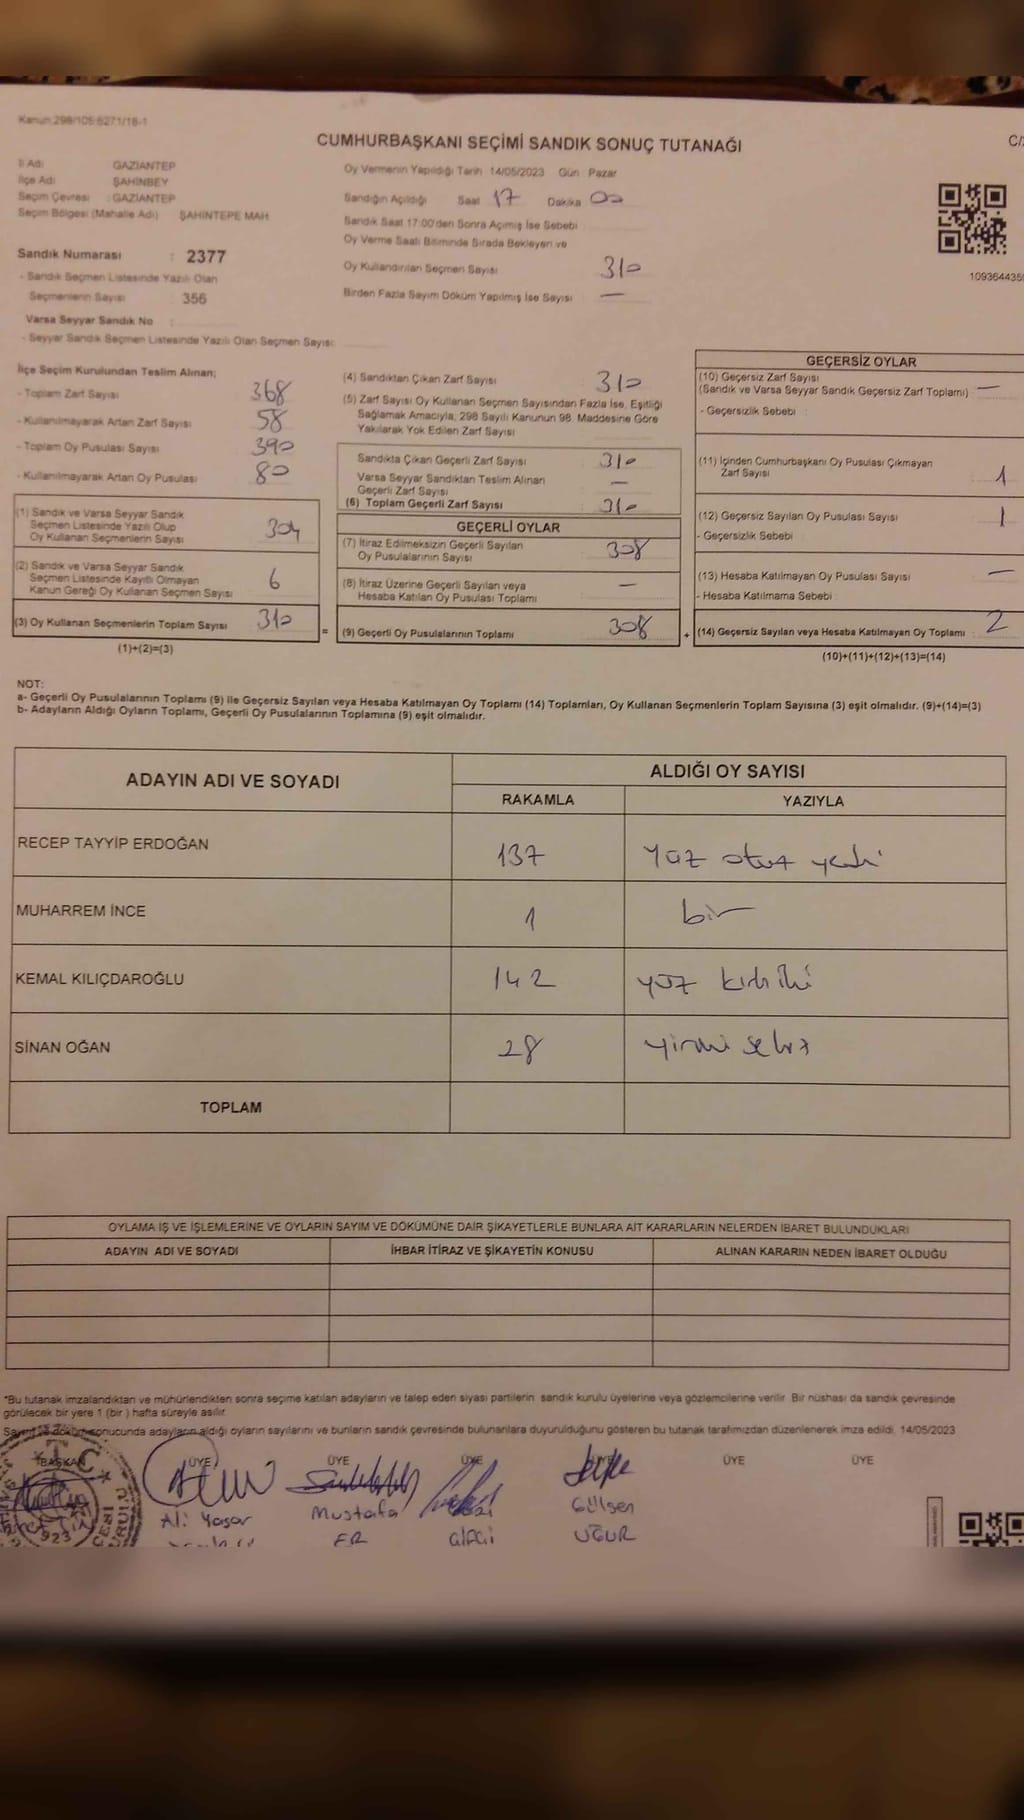 Kanun:298/105:6271/18-1
CUMHURBAŞKANI SEÇİMİ SANDIK SONUÇ TUTANAĞI
İl Adı: GAZİANTEP
İlçe Adı ŞAHİNBEY
Seçim Çevresi : GAZİANTEP
Seçim Bölgesi (Mahalle Adı) ŞAHİNTEPE MAH
Oy Vermenin Yapıldığı Tarih 14/05/2023 Gün Pazar
Sandığın Açıldığı Saat 17 Dakika 00
Sandık Saat 17:00'den Sonra Açımış İse Sebebi
Oy Verme Saati Bitiminde Sırada Bekleyen ve
Oy Kullandırılan Seçmen Sayısı 310
Birden Fazla Sayım Döküm Yapılmış İse Sayısı —
1093644359
Sandık Numarası : 2377
- Sandık Seçmen Listesinde Yazılı Olan
Seçmenlerin Sayısı : 356
Varsa Seyyar Sandık No :
- Seyyar Sandık Seçmen Listesinde Yazılı Olan Seçmen Sayısı:
İlçe Seçim Kurulundan Teslim Alınan;
- Toplam Zarf Sayısı 368
- Kullanılmayarak Artan Zarf Sayısı 58
- Toplam Oy Pusulası Sayısı 390
- Kullanılmayarak Artan Oy Pusulası 80
(1) Sandık ve Varsa Seyyar Sandık
Seçmen Listesinde Yazılı Olup
Oy Kullanan Seçmenlerin Sayısı 304
(2) Sandık ve Varsa Seyyar Sandık
Seçmen Listesinde Kayıtlı Olmayan
Kanun Gereği Oy Kullanan Seçmen Sayısı 6
(3) Oy Kullanan Seçmenlerin Toplam Sayısı 310
(1)+(2)=(3)
(4) Sandıktan Çıkan Zarf Sayısı 310
(5) Zarf Sayısı Oy Kullanan Seçmen Sayısından Fazla İse, Eşitliği
Sağlamak Amacıyla, 298 Sayılı Kanunun 98. Maddesine Göre
Yakılarak Yok Edilen Zarf Sayısı
Sandıkta Çıkan Geçerli Zarf Sayısı 310
Varsa Seyyar Sandıktan Teslim Alınan
Geçerli Zarf Sayısı —
(6) Toplam Geçerli Zarf Sayısı 310
GEÇERLİ OYLAR
(7) İtiraz Edilmeksizin Geçerli Sayılan
Oy Pusulalarının Sayısı 308
(8) İtiraz Üzerine Geçerli Sayılan veya
Hesaba Katılan Oy Pusulası Toplamı —
= (9) Geçerli Oy Pusulalarının Toplamı 308
GEÇERSİZ OYLAR
(10) Geçersiz Zarf Sayısı
(Sandık ve Varsa Seyyar Sandık Geçersiz Zarf Toplamı) —
- Geçersizlik Sebebi :
(11) İçinden Cumhurbaşkanı Oy Pusulası Çıkmayan
Zarf Sayısı 1
(12) Geçersiz Sayılan Oy Pusulası Sayısı 1
- Geçersizlik Sebebi :
(13) Hesaba Katılmayan Oy Pusulası Sayısı —
- Hesaba Katılmama Sebebi
+ (14) Geçersiz Sayılan veya Hesaba Katılmayan Oy Toplamı : 2
(10)+(11)+(12)+(13)=(14)
NOT:
a- Geçerli Oy Pusulalarının Toplamı (9) ile Geçersiz Sayılan veya Hesaba Katılmayan Oy Toplamı (14) Toplamları, Oy Kullanan Seçmenlerin Toplam Sayısına (3) eşit olmalıdır. (9)+(14)=(3)
b- Adayların Aldığı Oyların Toplamı, Geçerli Oy Pusulalarının Toplamına (9) eşit olmalıdır.
ADAYIN ADI VE SOYADI ALDIĞI OY SAYISI
RAKAMLA YAZIYLA
RECEP TAYYİP ERDOĞAN 137 Yüz otuz yedi
MUHARREM İNCE 1 bir
KEMAL KILIÇDAROĞLU 142 yüz kırk iki
SİNAN OĞAN 28 yirmi sekiz
TOPLAM
OYLAMA İŞ VE İŞLEMLERİNE VE OYLARIN SAYIM VE DÖKÜMÜNE DAİR ŞİKAYETLERLE BUNLARA AİT KARARLARIN NELERDEN İBARET BULUNDUKLARI
ADAYIN ADI VE SOYADI İHBAR İTİRAZ VE ŞİKAYETİN KONUSU ALINAN KARARIN NEDEN İBARET OLDUĞU
*Bu tutanak imzalandıktan ve mühürlendikten sonra seçime katılan adayların ve talep eden siyasi partilerin sandık kurulu üyelerine veya gözlemcilerine verilir. Bir nüshası da sandık çevresinde
görülecek bir yere 1 (bir ) hafta süreyle asılır.
Sayım ve döküm sonucunda adayların aldığı oyların sayılarını ve bunların sandık çevresinde bulunanlara duyurulduğunu gösteren bu tutanak tarafımızdan düzenlenerek imza edildi. 14/05/2023
BAŞKAN ÜYE ÜYE ÜYE ÜYE ÜYE ÜYE
Ali Yaşar Mustafa Gülsen
ER UĞUR
T.C.